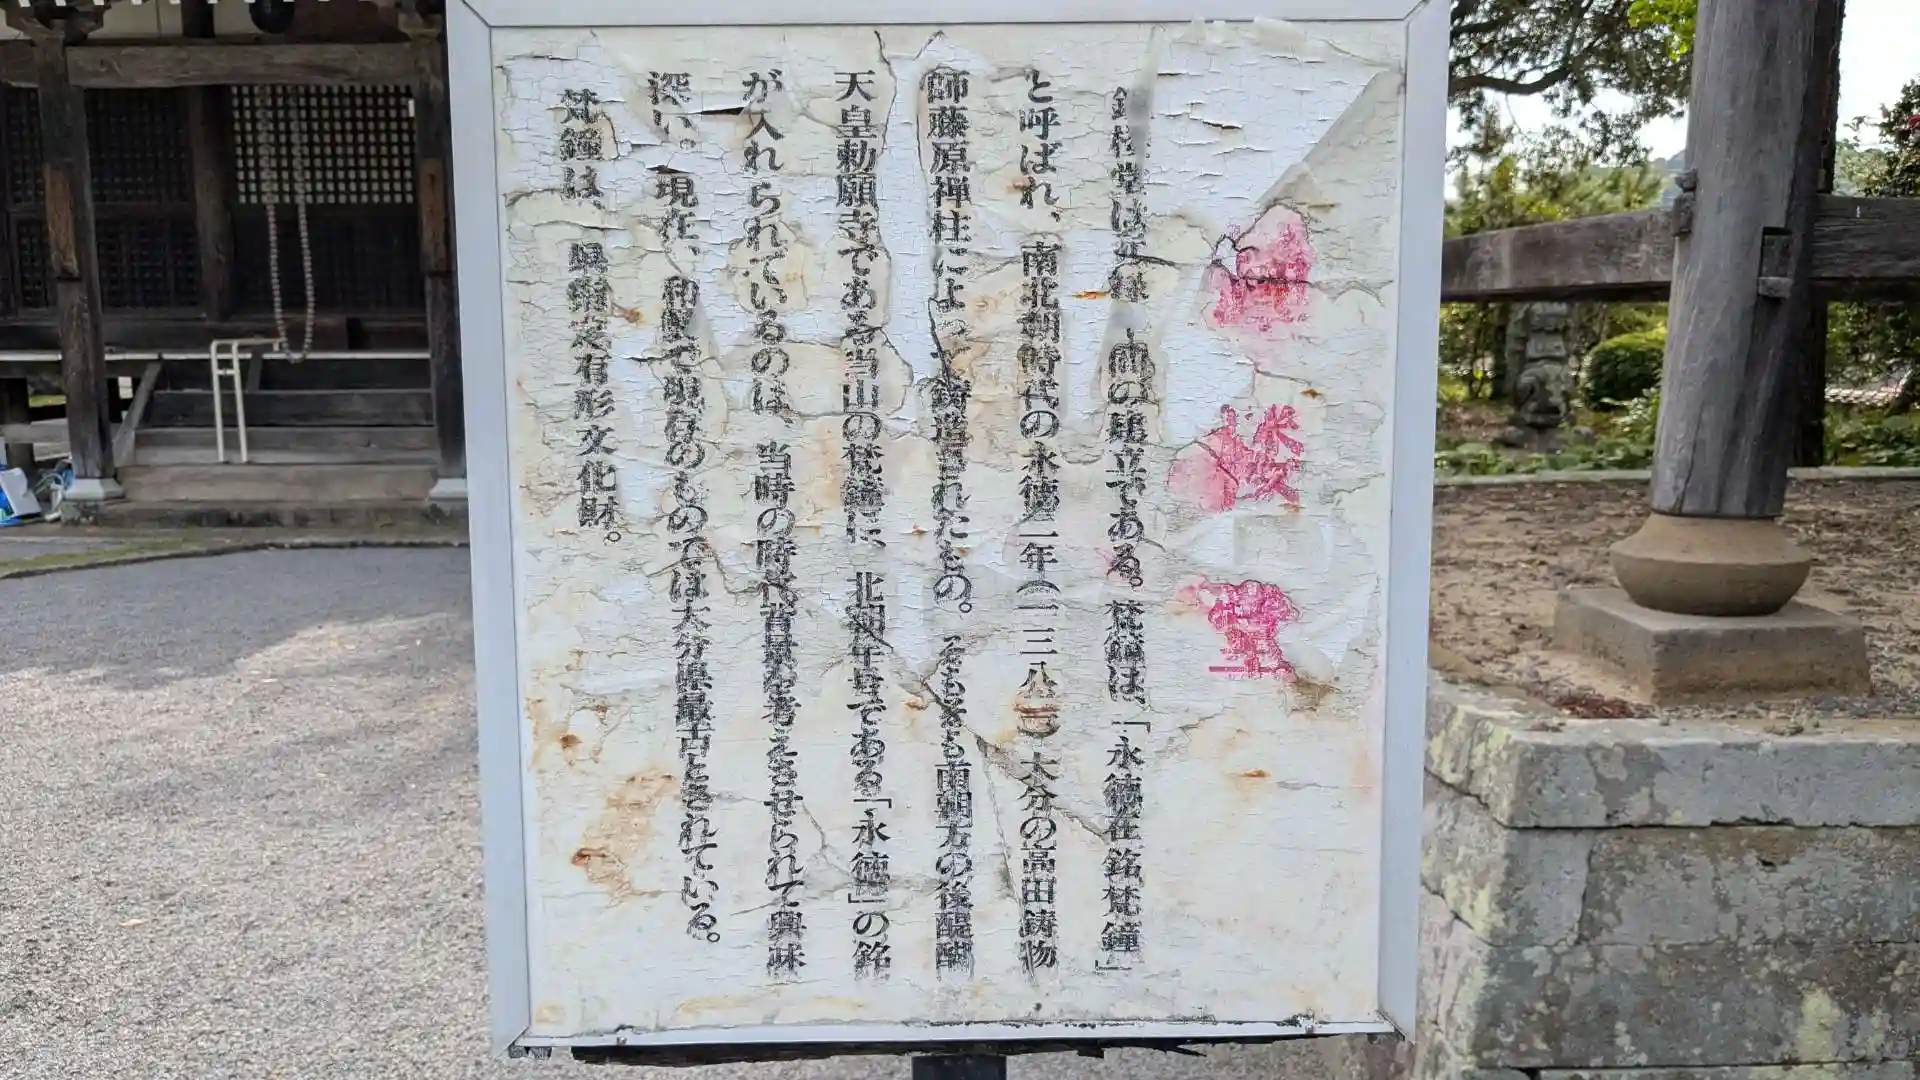 鐘楼堂
鐘楼堂は元禄 間の建立である。梵鐘は、「永徳在銘梵鐘」
と呼ばれ、南北朝時代の永徳二年(一三八二)大分の高田鋳物
師藤原禅柱によって鋳造されたもの。そもそも南朝方の後醍醐
天皇勅願寺である当山の梵鐘に、北朝年号である「永徳」の銘
が入れられているのは、当時の時代背景を考えさせられて興味
深い。現在、和鐘で現存のものでは大分県最古とされている。
梵鐘は、県指定有形文化財。